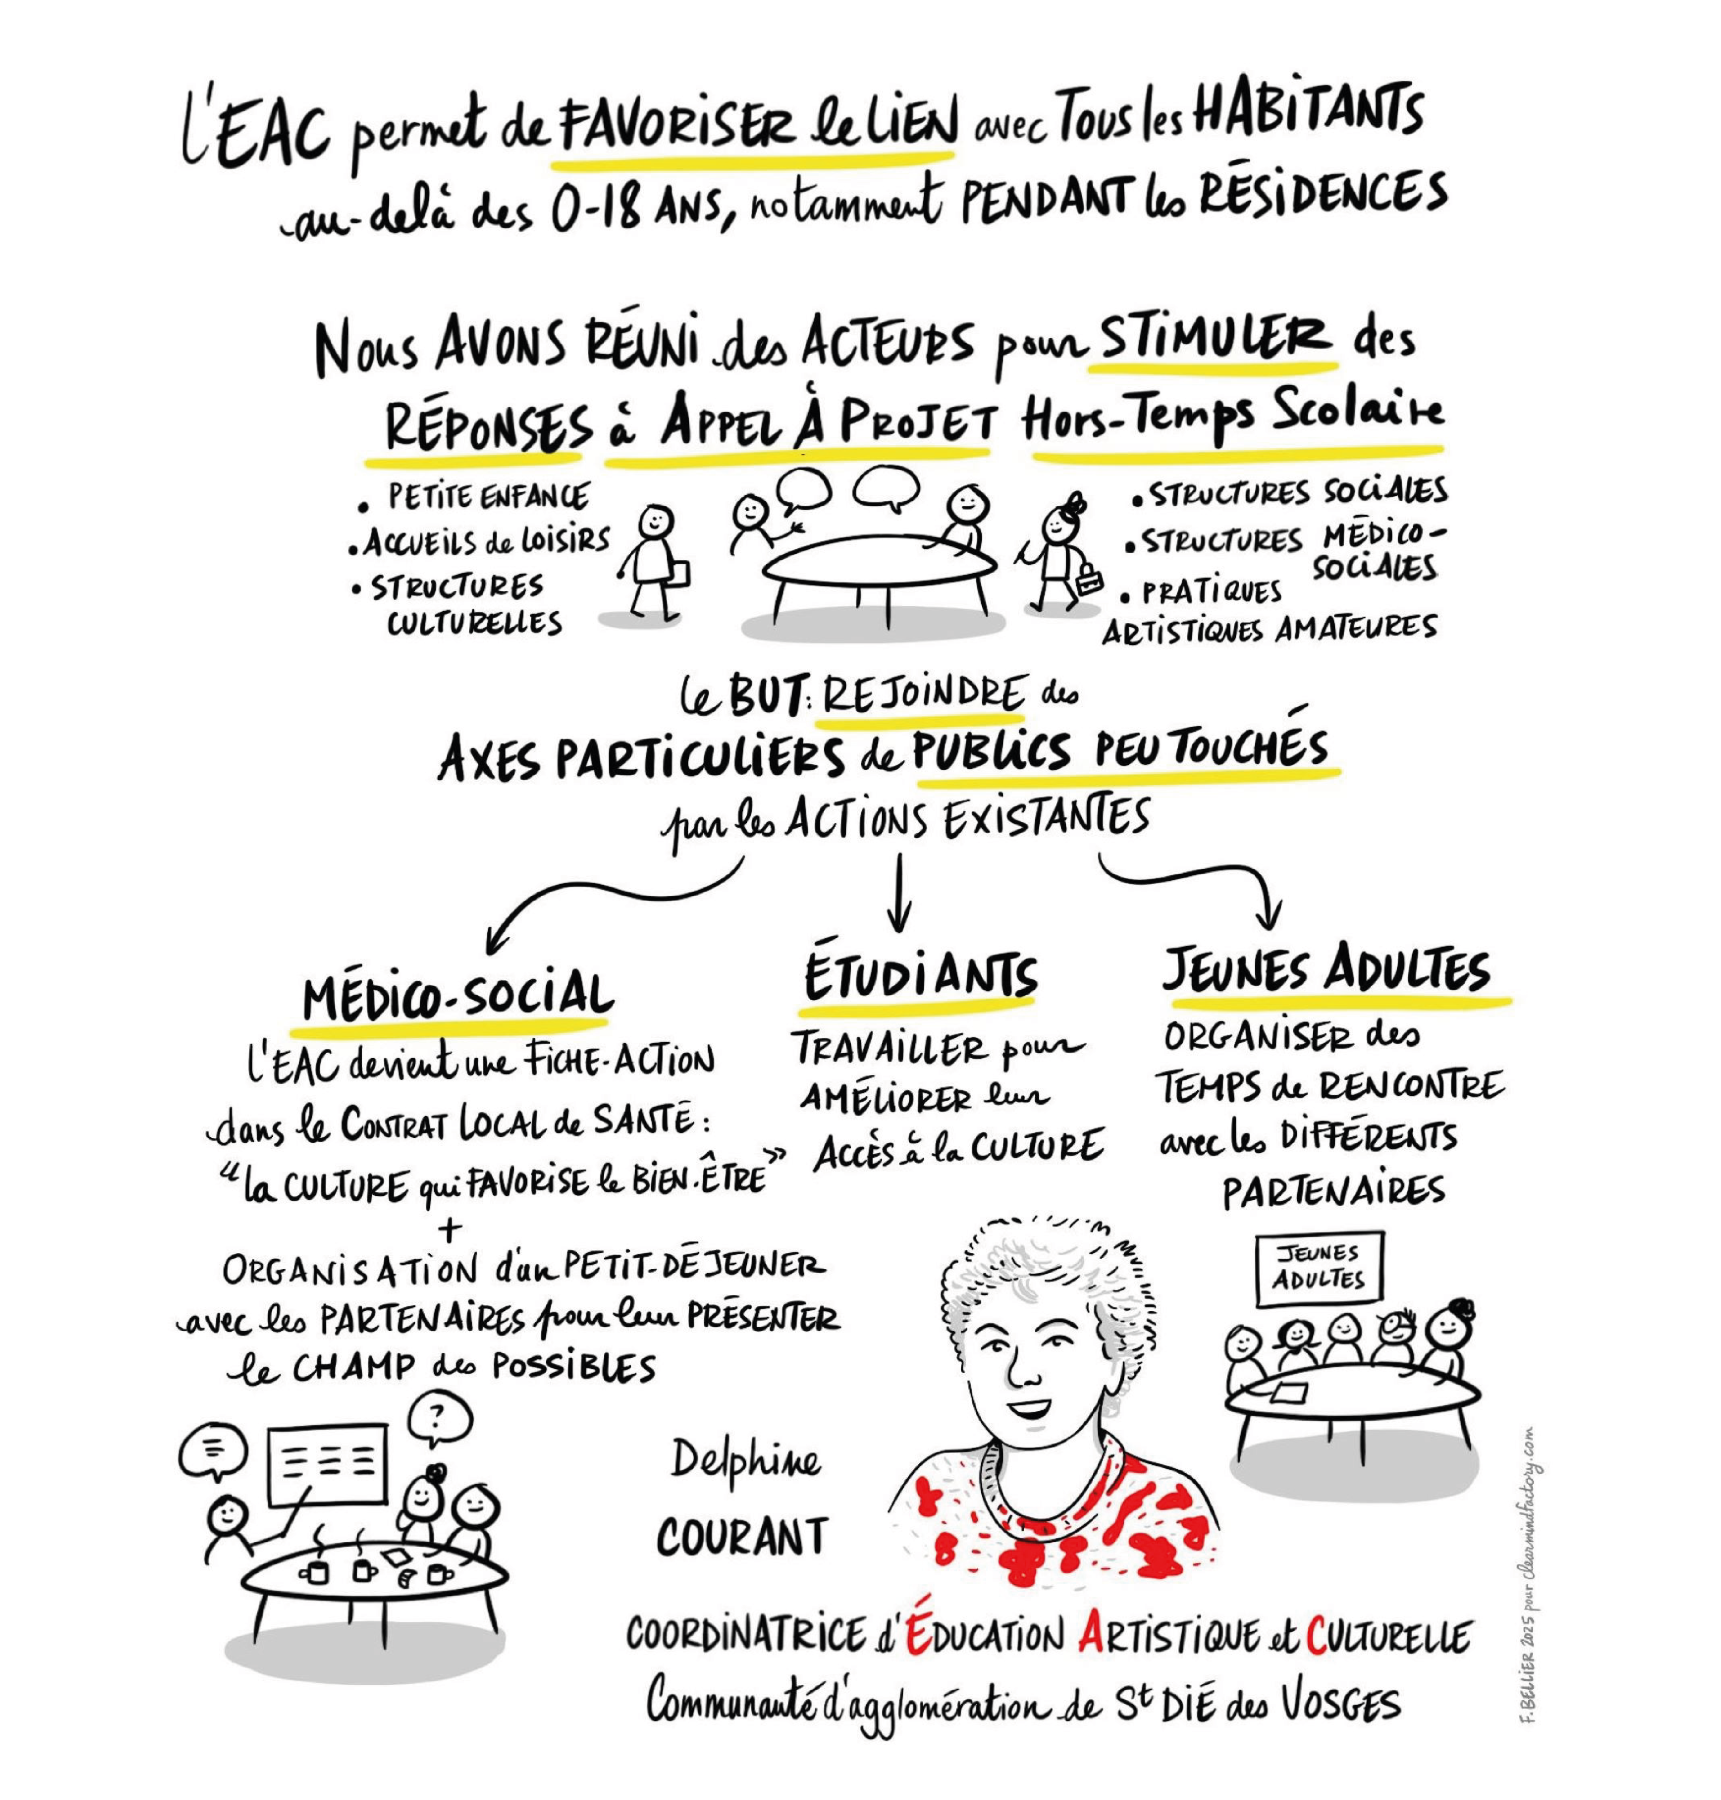 L'EAC permet de FAVORISER le LIEN avec TOUS les HABITANTS
au-delà des 0-18 ANS, notamment PENDANT les RÉSIDENCES
Nous AVONS RÉUNI des ACTEURS pour STIMULER des
RÉPONSES à APPEL À PROJET Hors-Temps Scolaire
• PETITE ENFANCE
• ACCUEILS de LOISIRS
• STRUCTURES
CULTURELLES
• STRUCTURES SOCIALES
• STRUCTURES MÉDICO-
SOCIALES
• PRATIQUES
ARTISTIQUES AMATEURES
le BUT: REJOINDRE des
AXES PARTICULIERS de PUBLICS PEU TOUCHÉS
par les ACTIONS EXISTANTES
MÉDICO-SOCIAL
L'EAC devient une FICHE-ACTION
dans le CONTRAT LOCAL de SANTÉ:
"la CULTURE qui FAVORISE le BIEN-ÊTRE"
+
ORGANISATION d'un PETIT-DÉJEUNER
avec les PARTENAIRES pour leur PRÉSENTER
le CHAMP des POSSIBLES
?
ÉTUDIANTS
TRAVAILLER pour
AMÉLIORER leur
ACCÈS à la CULTURE
JEUNES ADULTES
ORGANISER des
TEMPS de RENCONTRE
avec les DIFFÉRENTS
PARTENAIRES
JEUNES
ADULTES
Delphine
COURANT
COORDINATRICE d'ÉDUCATION ARTISTIQUE et CULTURELLE
Communauté d'agglomération de St DIÉ des VOSGES
F. BELLIER 2025 pour clearmindfactory.com